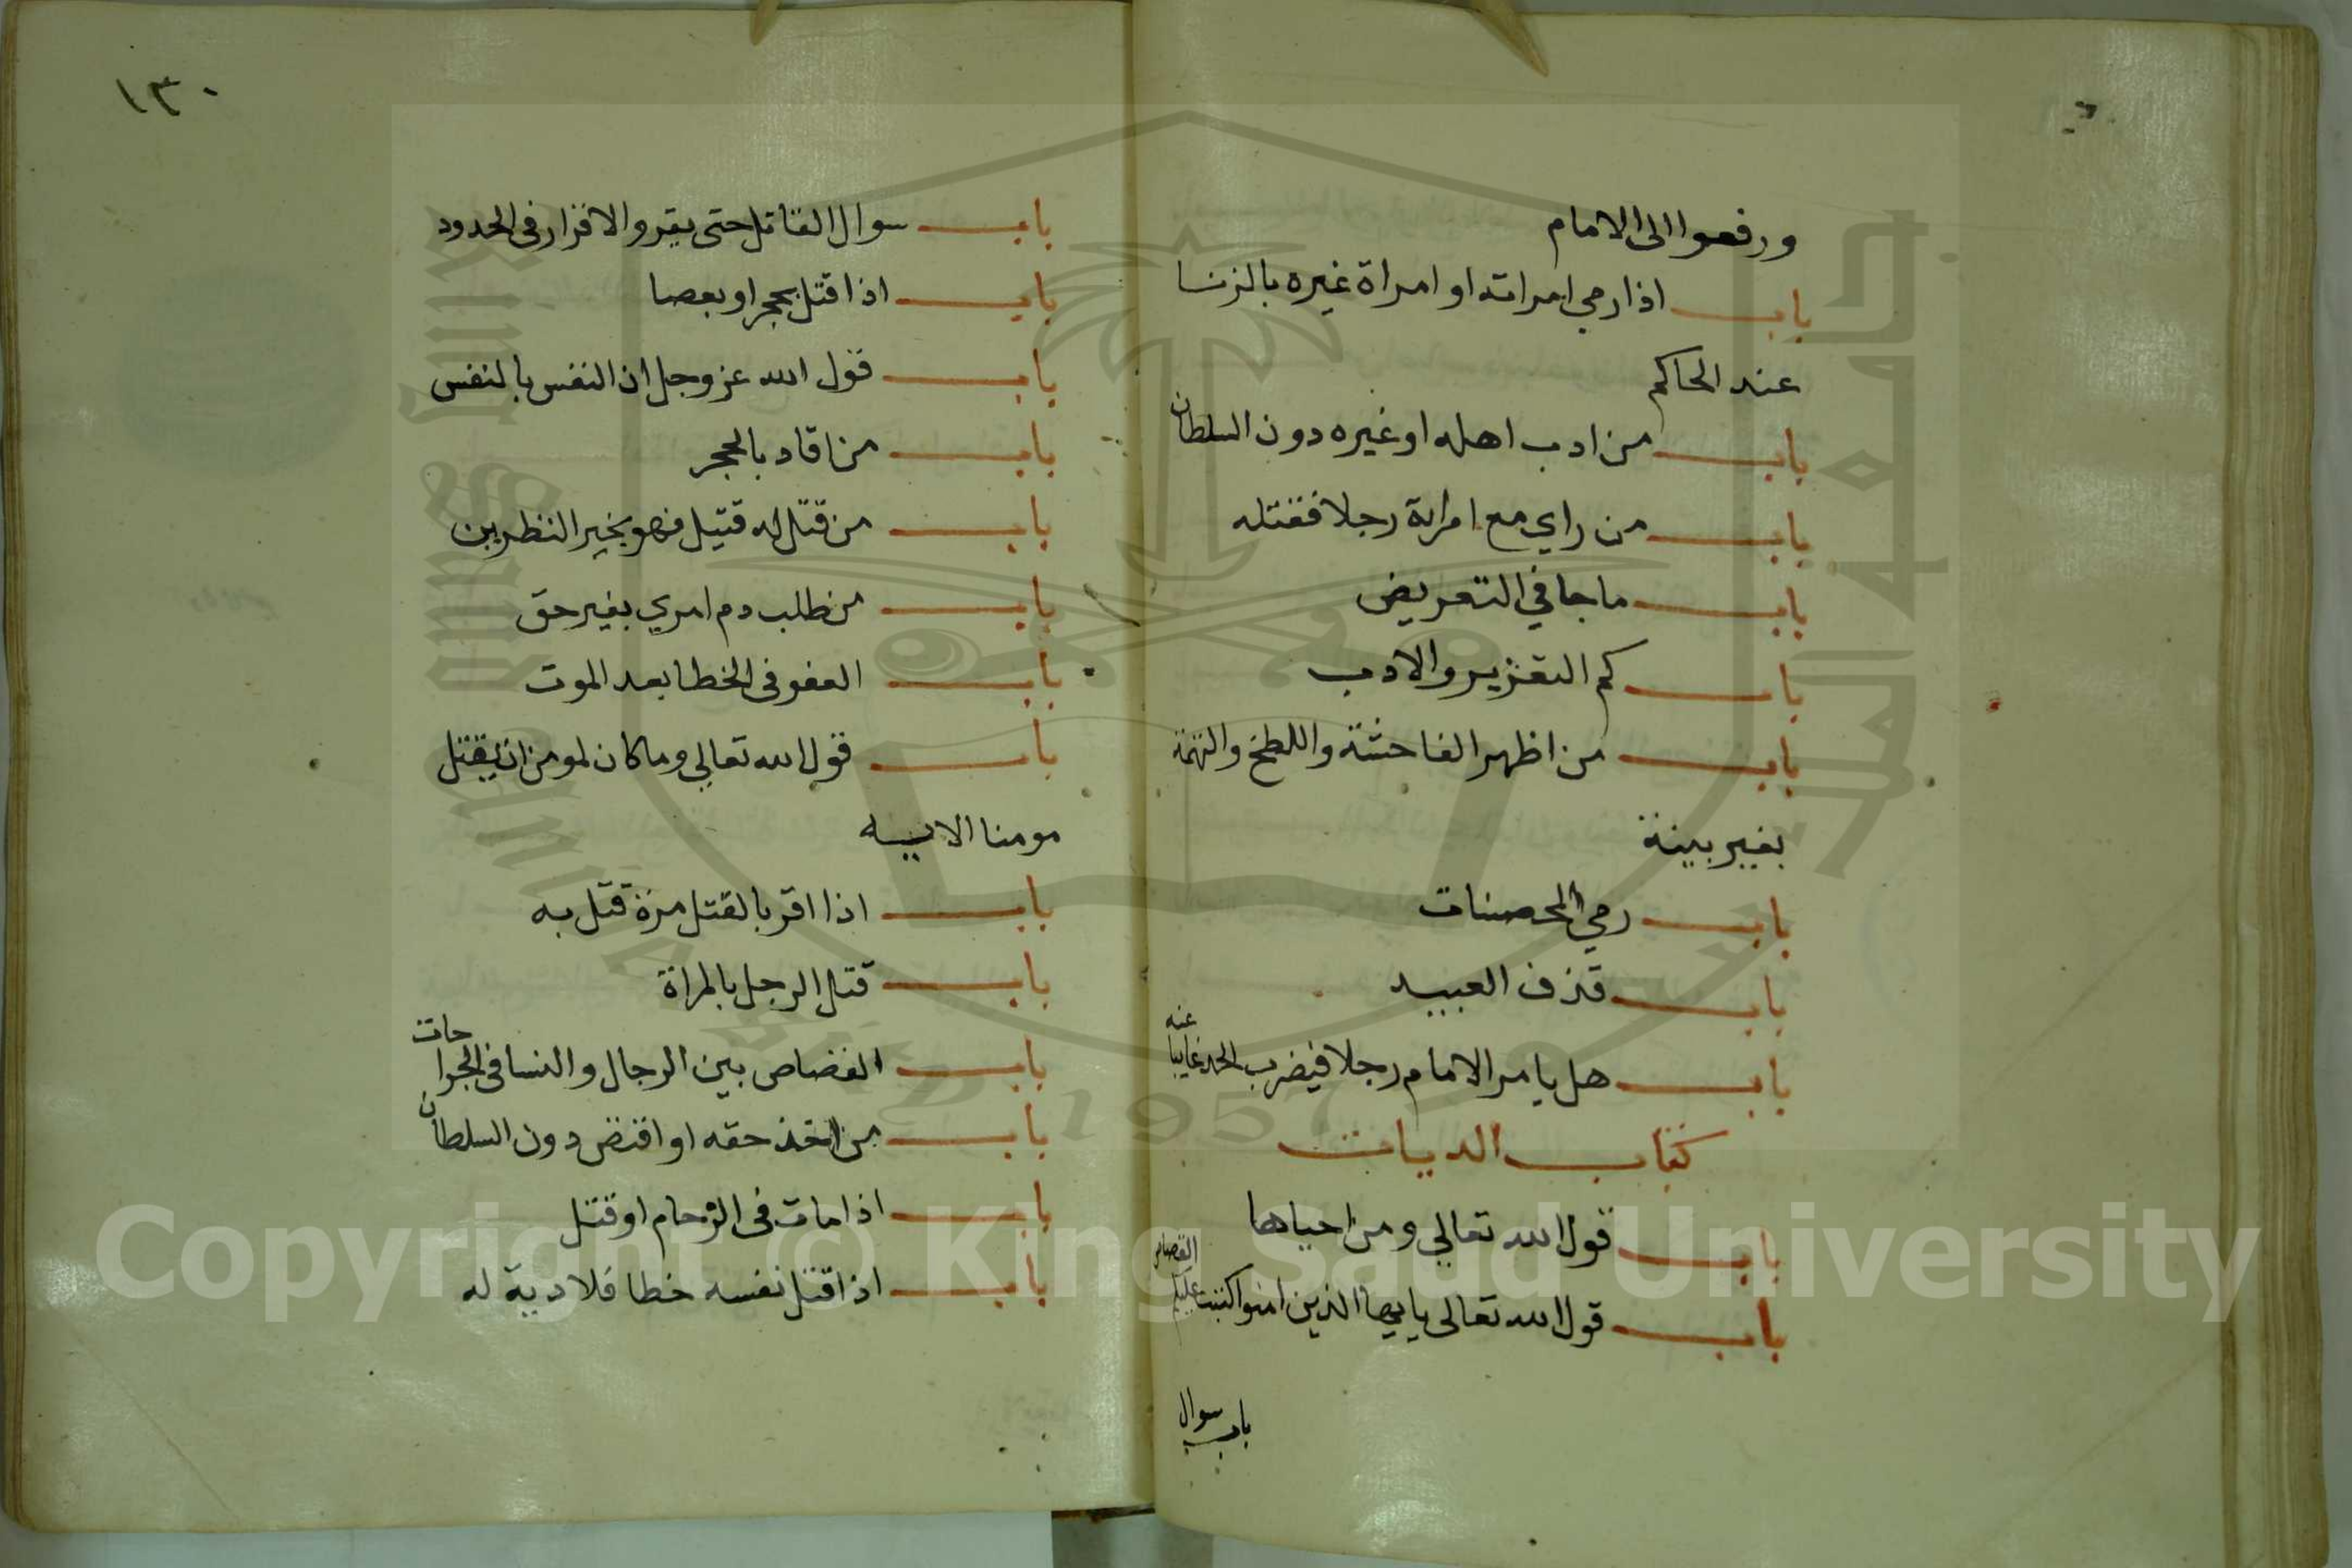 ورفعوا الى الامام
باب اذا رمي امراته او امراة غيره بالزنا
عند الحاكم
باب من ادب اهله او غيره دون السلطان
باب من راي مع امراة رجلا فقتله
باب ما جا في التعريض
باب كم التعزير والادب
باب من اظهر الفاحشة واللطخ والتهمة
بغير بينة
باب رمي المحصنات
باب قذف العبيد
باب هل يامر الامام رجلا فيضرب الحد غايبا عنه
كتاب الديات
باب قول الله تعالي ومن احياها
باب قول الله تعالى يا ايها الذين امنوا كتبت عليكم القصاص
باب سوال
١٣٠
باب سوال القاتل حتى يقر والاقرار فى الحدود
باب اذا قتل بحجر او بعصا
باب قول الله عز وجل ان النفس بالنفس
باب من اقاد بالحجر
باب من قتل له قتيل فهو بخير النظرين
باب من طلب دم امري بغير حق
باب العفو فى الخطا بعد الموت
باب قول الله تعالي وما كان لمومن ان يقتل
مومنا الايه
باب اذا اقر بالقتل مرة قتل به
باب قتل الرجل بالمراة
باب القصاص بين الرجال والنسا فى الجراحات
باب من اخذ حقه او اقتض دون السلطان
باب اذا مات فى الزحام او قتل
باب اذا قتل نفسه خطا فلا دية له
Copyright © King Saud University
1957